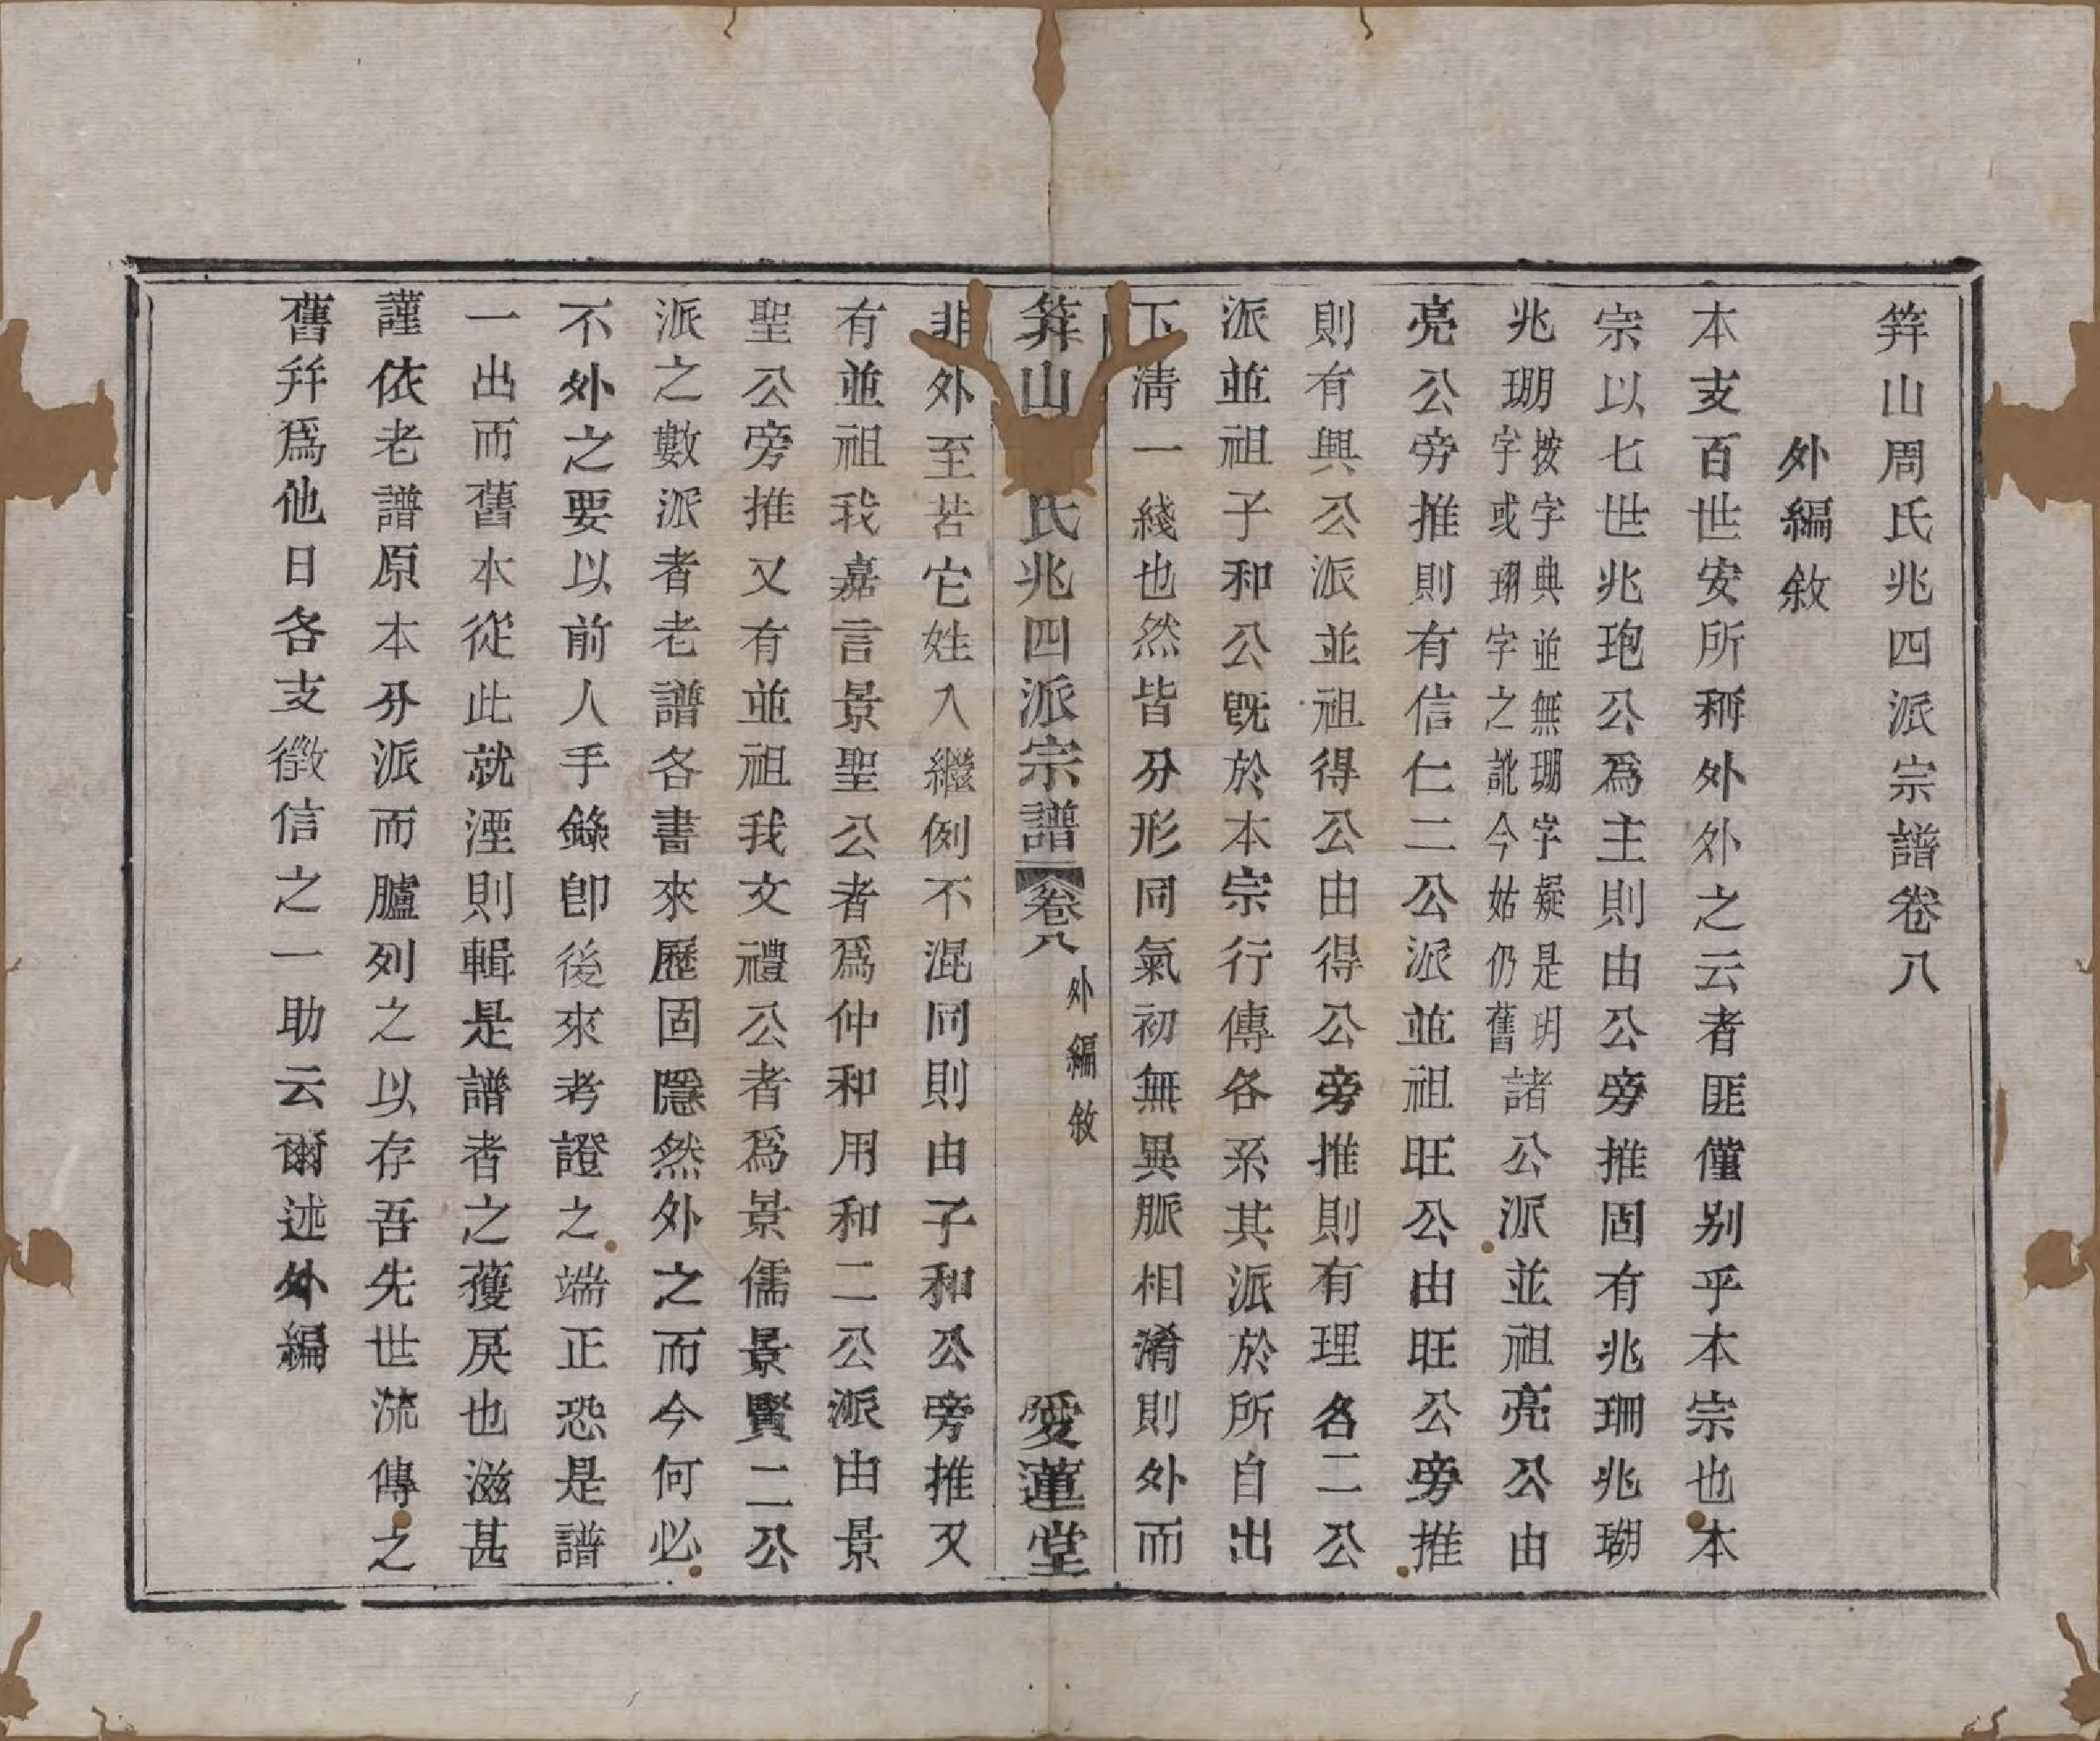 笄山周氏兆四派宗譜卷八
外編敘
本支百世安所稱外外之云者匪僅别乎本宗也本
宗以七世兆玸公爲主則由公旁推固有兆珊兆瑚
兆珊按字典並無珊字疑是玥
字或珝字之訛今姑仍舊諸公派並祖亮公由
亮公旁推則有信仁二公派並祖旺公由旺公旁推
則有興公派並祖得公由得公旁推則有理名二公
派並祖子和公既於本宗行傳各系其派於所自出
下清一綫也然皆分形同氣初無異脈相淆則外而
笄山氏兆四派宗譜 卷八 外編敘 愛蓮堂
非外至若它姓入繼例不混同則由子和公旁推又
有並祖我嘉言景聖公者爲仲和用和二公派由景
聖公旁推又有並祖我文禮公者爲景儒景賢二公
派之數派者老譜各書來歷固隱然外之而今何必
不外之要以前人手錄卽後來考證之端正恐是譜
一出而舊本從此就湮則輯是譜者之獲戾也滋甚
謹依老譜原本分派而臚列之以存吾先世流傳之
舊幷爲他日各支徵信之一助云爾述外編